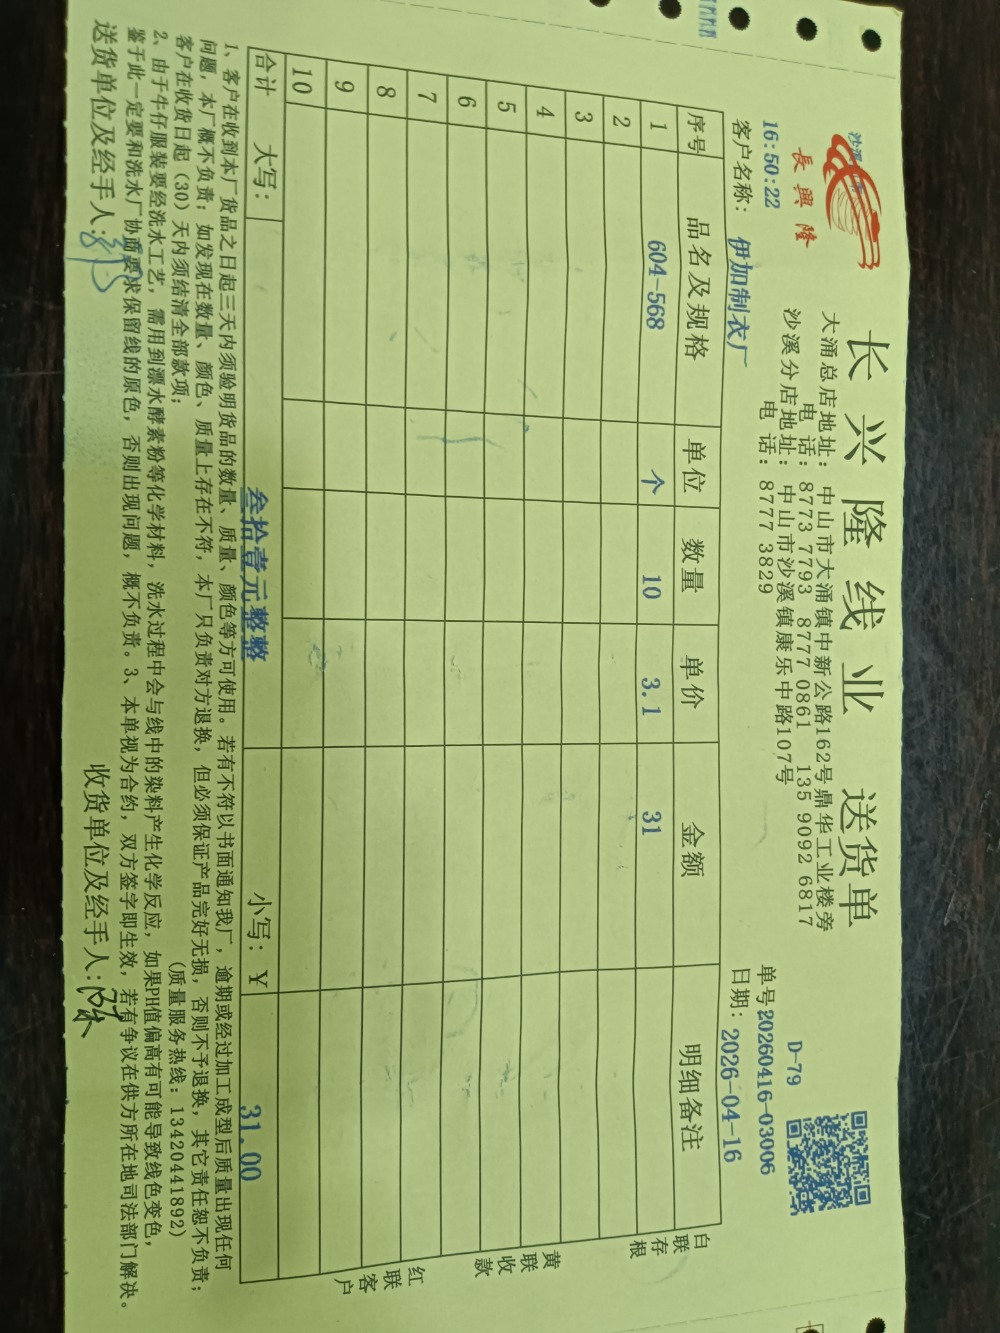 長興隆
长兴隆线业 送货单
大涌总店地址：中山市大涌镇中新公路162号鼎华工业楼旁
电 话：8773 7793 8777 0861 135 9092 6817
沙溪分店地址：中山市沙溪镇康乐中路107号
电 话：8777 3829
D-79
16:50:22
单号20260416-03006
客户名称：伊加制衣厂
日期：2026-04-16
序号 品名及规格 单位 数量 单价 金额 明细备注
1 604-568 个 10 3.1 31
2
3
4
5
6
7
8
9
10
合计 大写：叁拾壹元整整 小写：¥ 31.00
白联存根
黄联收款
红联客户
1、客户在收到本厂货品之日起三天内须验明货品的数量、质量、颜色等方可使用。若有不符以书面通知我厂，逾期或经过加工成型后质量出现任何
问题，本厂概不负责；如发现在数量、颜色、质量上存在不符，本厂只负责对方退换，但必须保证产品完好无损，否则不予退换，其它责任恕不负责；
客户在收货日起（30）天内须结清全部款项； (质量服务热线：13420441892)
2、由于牛仔服装要经洗水工艺，需用到漂水酵素粉等化学材料，洗水过程中会与线中的染料产生化学反应，如果PH值偏高有可能导致线色变色，
鉴于此一定要和洗水厂协商要求保留线的原色，否则出现问题，概不负责。3、本单视为合约，双方签字即生效，若有争议在供方所在地司法部门解决。
送货单位及经手人： 收货单位及经手人：